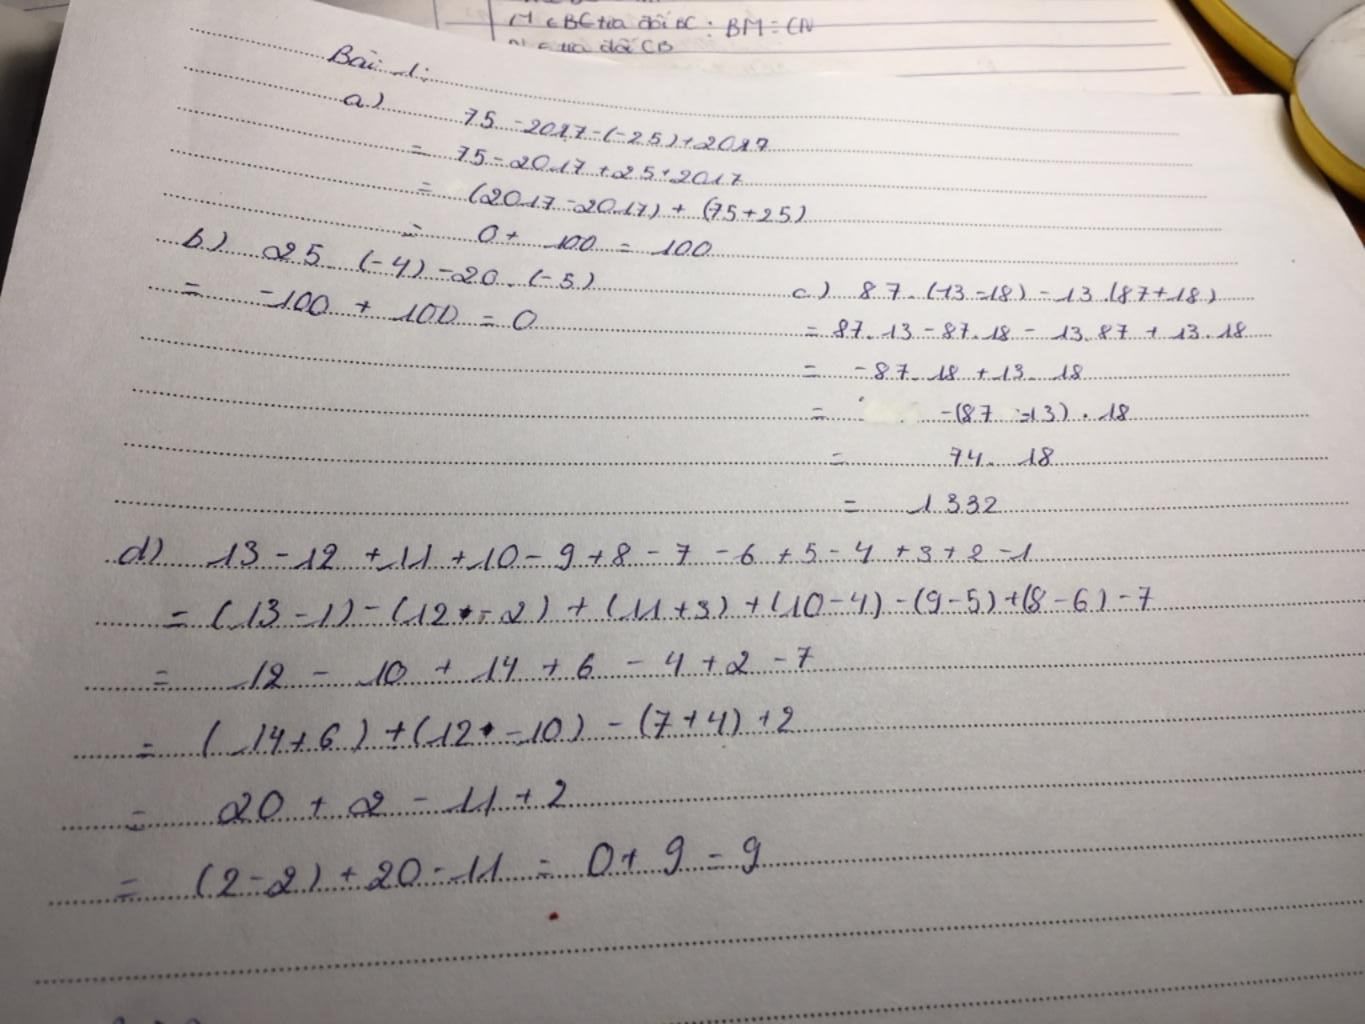 M ∈ BC tia đối BC : BM = CN
tia đối CB
Bài 1:
a) 75 - 2017 - (-25) + 2017
= 75 - 2017 + 25 + 2017
= (2017 - 2017) + (75 + 25)
= 0 + 100 = 100
b) 25 . (-4) - 20 . (-5)
= -100 + 100 = 0
c) 87 . (13 - 18) - 13 . (87 + 18)
= 87 . 13 - 87 . 18 - 13 . 87 + 13 . 18
= - 87 . 18 + 13 . 18
= -(87 - 13) . 18
= 74 . 18
= 1332
d) 13 - 12 + 11 + 10 - 9 + 8 - 7 - 6 + 5 - 4 + 3 + 2 - 1
= (13 - 1) - (12 - 2) + (11 + 3) + (10 - 4) - (9 - 5) + (8 - 6) - 7
= 12 - 10 + 14 + 6 - 4 + 2 - 7
= (14 + 6) + (12 - 10) - (7 + 4) + 2
= 20 + 2 - 11 + 2
= (2 - 2) + 20 - 11 = 0 + 9 = 9